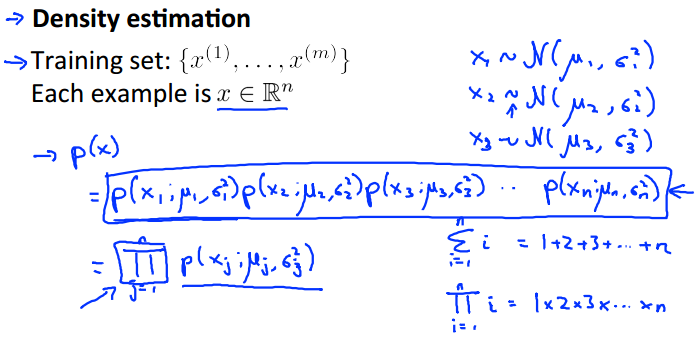 → Density estimation
→ Training set: {x^(1), . . . , x^(m)}
Each example is x ∈ ℝ^n
x₁ ~ N(μ₁, σ₁²)
x₂ ~ N(μ₂, σ₂²)
x₃ ~ N(μ₃, σ₃²)
→ p(x)
= p(x₁; μ₁, σ₁²) p(x₂; μ₂, σ₂²) p(x₃; μ₃, σ₃²) ·· p(xₙ; μₙ, σₙ²) ←
= ∏_{j=1}^{n} p(x_j; μ_j, σ_j²)
∑_{i=1}^{n} i = 1+2+3+···+n
∏_{i=1}^{n} i = 1×2×3×···×n